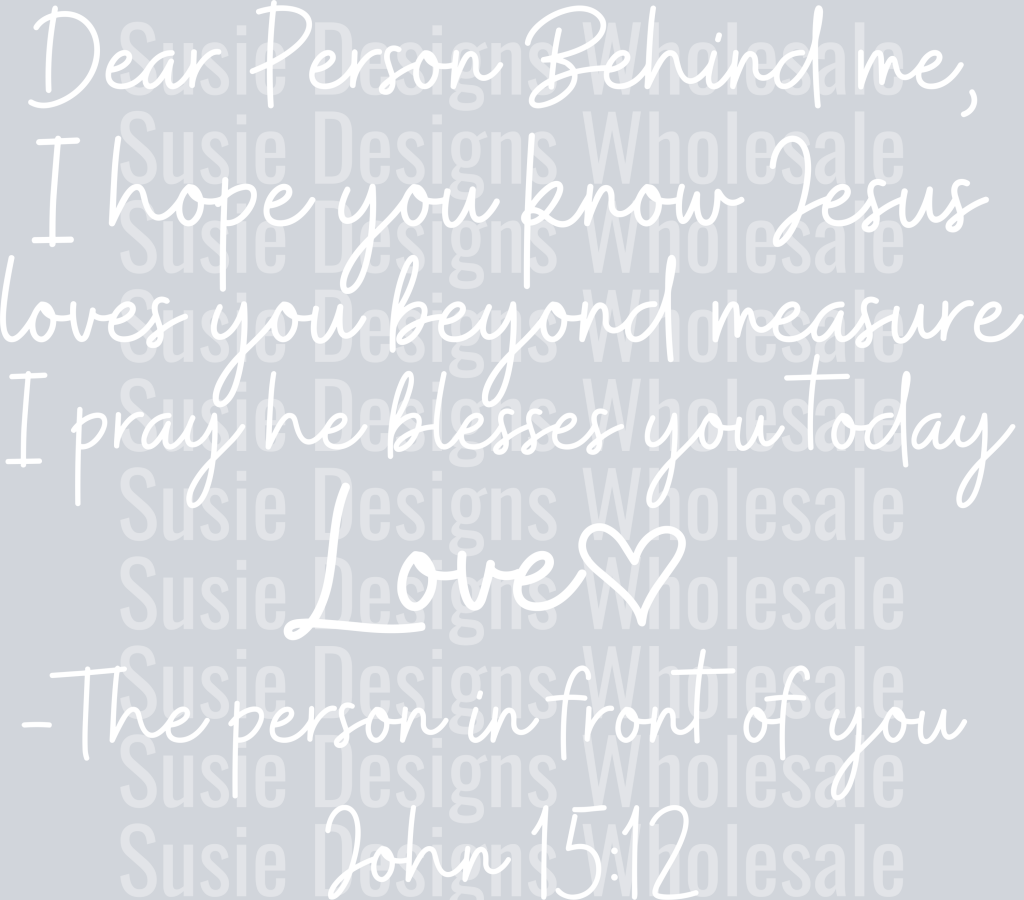 Dear Person Behind me,
I hope you know Jesus
loves you beyond measure
I pray he blesses you today
Love
-The person in front of you
John 15:12
Susie Designs Wholesale
Susie Designs Wholesale
Susie Designs Wholesale
Susie Designs Wholesale
Susie Designs Wholesale
Susie Designs Wholesale
Susie Designs Wholesale
Susie Designs Wholesale
Susie Designs Wholesale
Susie Designs Wholesale